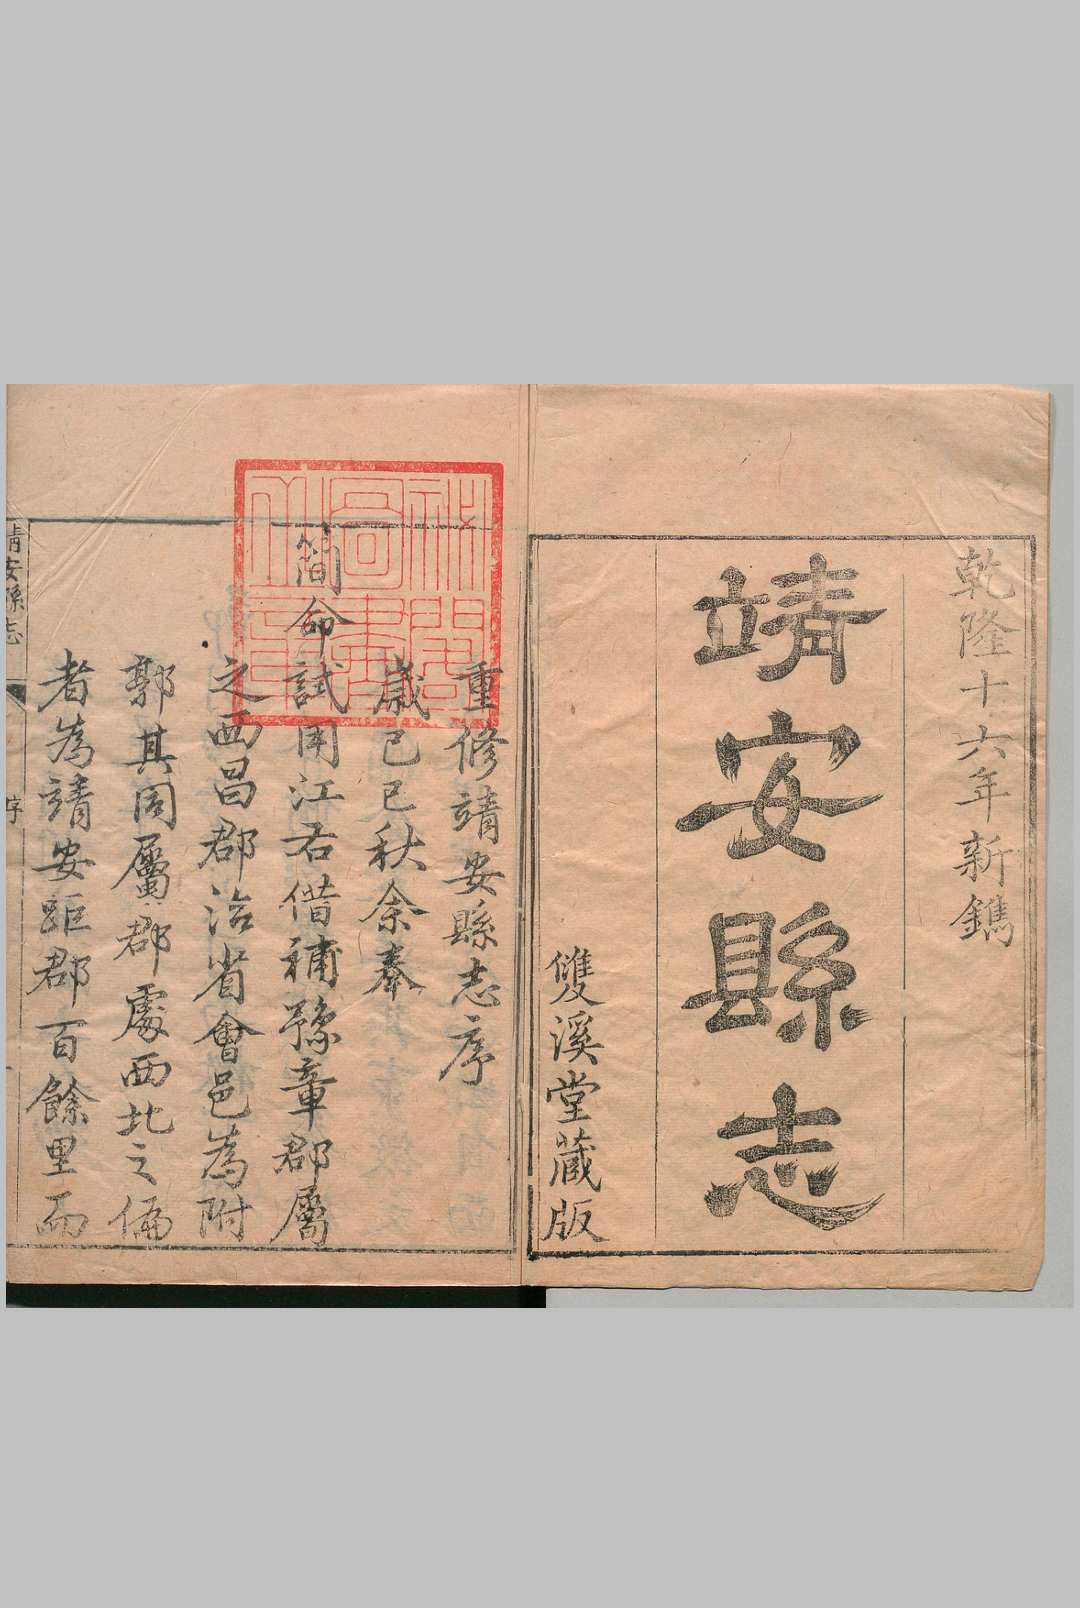 乾隆十六年新鐫
靖安縣志
雙溪堂藏版
重修靖安縣志序
歲己巳秋余奉
簡命試用江右借補豫章郡屬
之西昌郡治省會邑為附
郭其同屬郡處西北之偏
者為靖安距郡百餘里而
靖安縣志
序
秘閣圖書之章